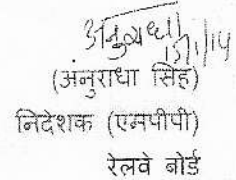 अनुराधा
15/1/14
(अनुराधा सिंह)
निदेशक (एमपीपी)
रेलवे बोर्ड